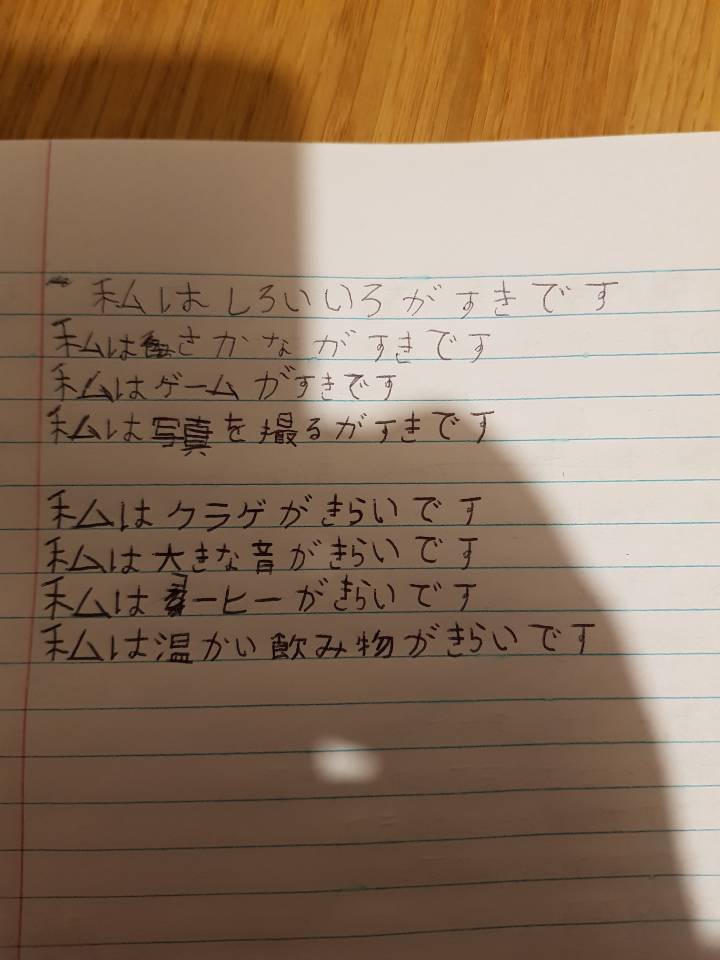 私はしろいいろがすきです
私はさかながすきです
私はゲームがすきです
私は写真を撮るがすきです
私はクラゲがきらいです
私は大きな音がきらいです
私はコーヒーがきらいです
私は温かい飲み物がきらいです